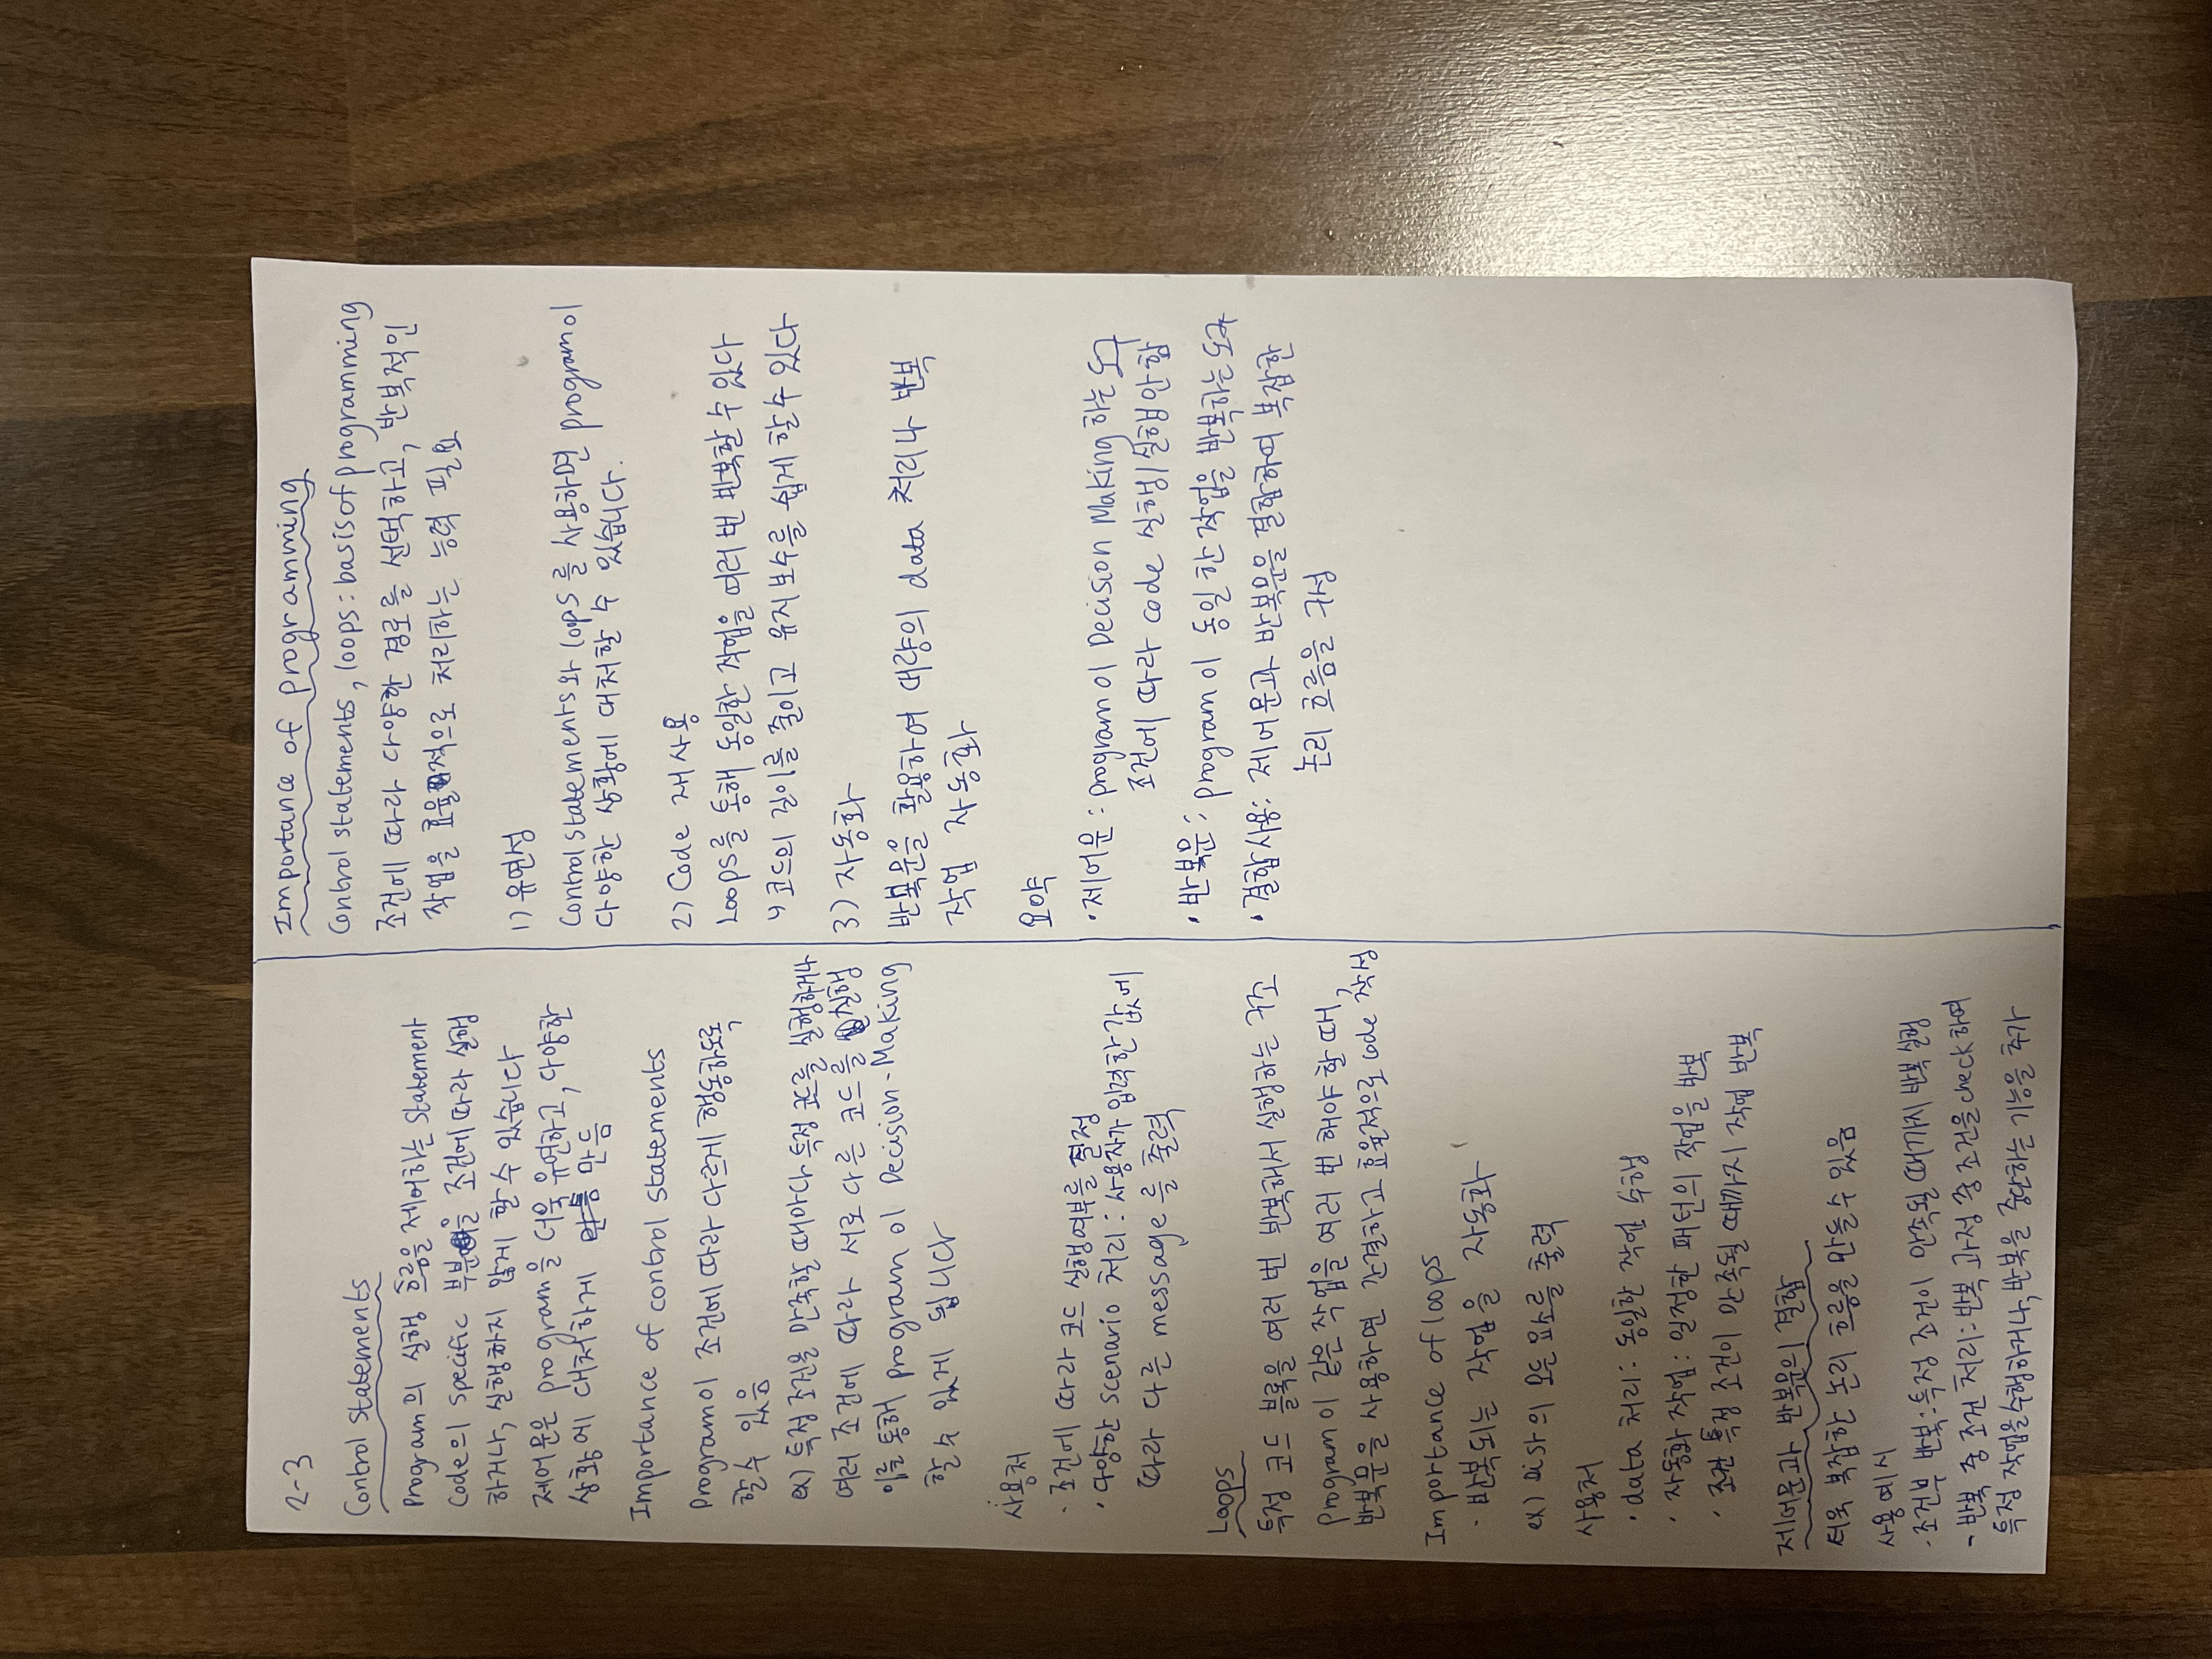 2-3
Control Statements
Program의 실행 흐름을 제어하는 Statement
Code의 specific 부분을 조건에 따라 실행
하거나, 실행하지 않게 할 수 있습니다
제어문은 program을 더욱 유연하고, 다양한
상황에 대처하게 만듬
Importance of control statements
Program이 조건에 따라 다르게 행동하도록
할 수 있음
ex) 특정 조건을 만족할 때마다 특정 코드를 실행하거나
여러 조건에 따라 서로 다른 코드를 실행
이를 통해 program이 Decision-Making
할 수 있게 됩니다
사용처
· 조건에 따라 코드 실행여부를 결정
· 다양한 scenario 처리: 사용자가 입력한 값에
따라 다른 message를 출력
Loops
특정 코드 블록을 여러 번 반복해서 실행하는 구조
Program이 같은 작업을 여러 번 해야 할 때,
반복문을 사용하면 간결하고 효율적으로 code 작성
Importance of loops
· 반복되는 작업을 자동화
ex) list의 모든 요소를 출력
사용처
· data 처리: 동일한 작업 수행
· 자동화 작업: 일정한 패턴의 작업을 반복
· 조건: 특정 조건이 만족될 때까지 작업 반복
제어문과 반복문의 결합
더욱 복잡한 논리 흐름을 만들 수 있음
사용 예시
· 조건부 반복: 특정 조건이 만족될 때까지 반복 실행
- 반복 중 조건 처리: 반복 과정 중 조건을 check하여
특정 작업을 수행하거나, 반복을 중단하는 기능을 추가
Importance of programming
Control statements, loops: basis of programming
조건에 따라 다양한 경로를 선택하고, 반복적인
작업을 효율적으로 처리하는 능력 필요
1) 유연성
Control statements와 loops를 사용하면 program이
다양한 상황에 대처할 수 있습니다.
2) Code 재사용
Loops를 통해 동일한 작업을 여러 번 반복할 수 있다
↳ 코드의 길이를 줄이고 유지보수를 쉽게 할 수 있다
3) 자동화
반복문을 활용하여 대량의 data 처리나 반복
작업 자동화
요약
· 제어문: program이 Decision Making하는 도구
조건에 따라 code 실행/실행안함
· 반복문: program이 동일한 작업을 반복하는 도구
· 결합사용: 제어문과 반복문을 결합하여 복잡한
논리 흐름을 구성